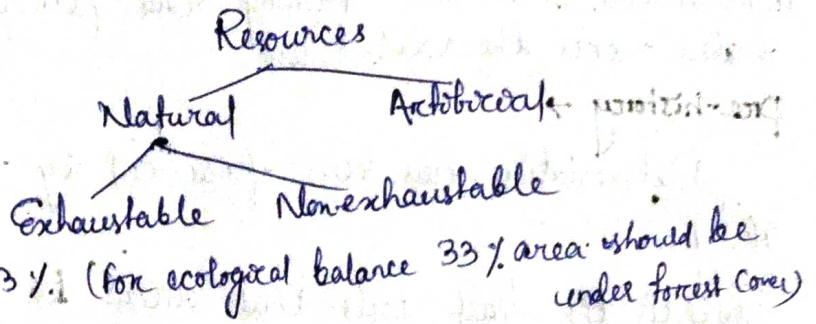 Resources
Natural Artificial
Exhaustable Nonexhaustable
3 %. (for ecological balance 33 % area should be
under forest Cover)